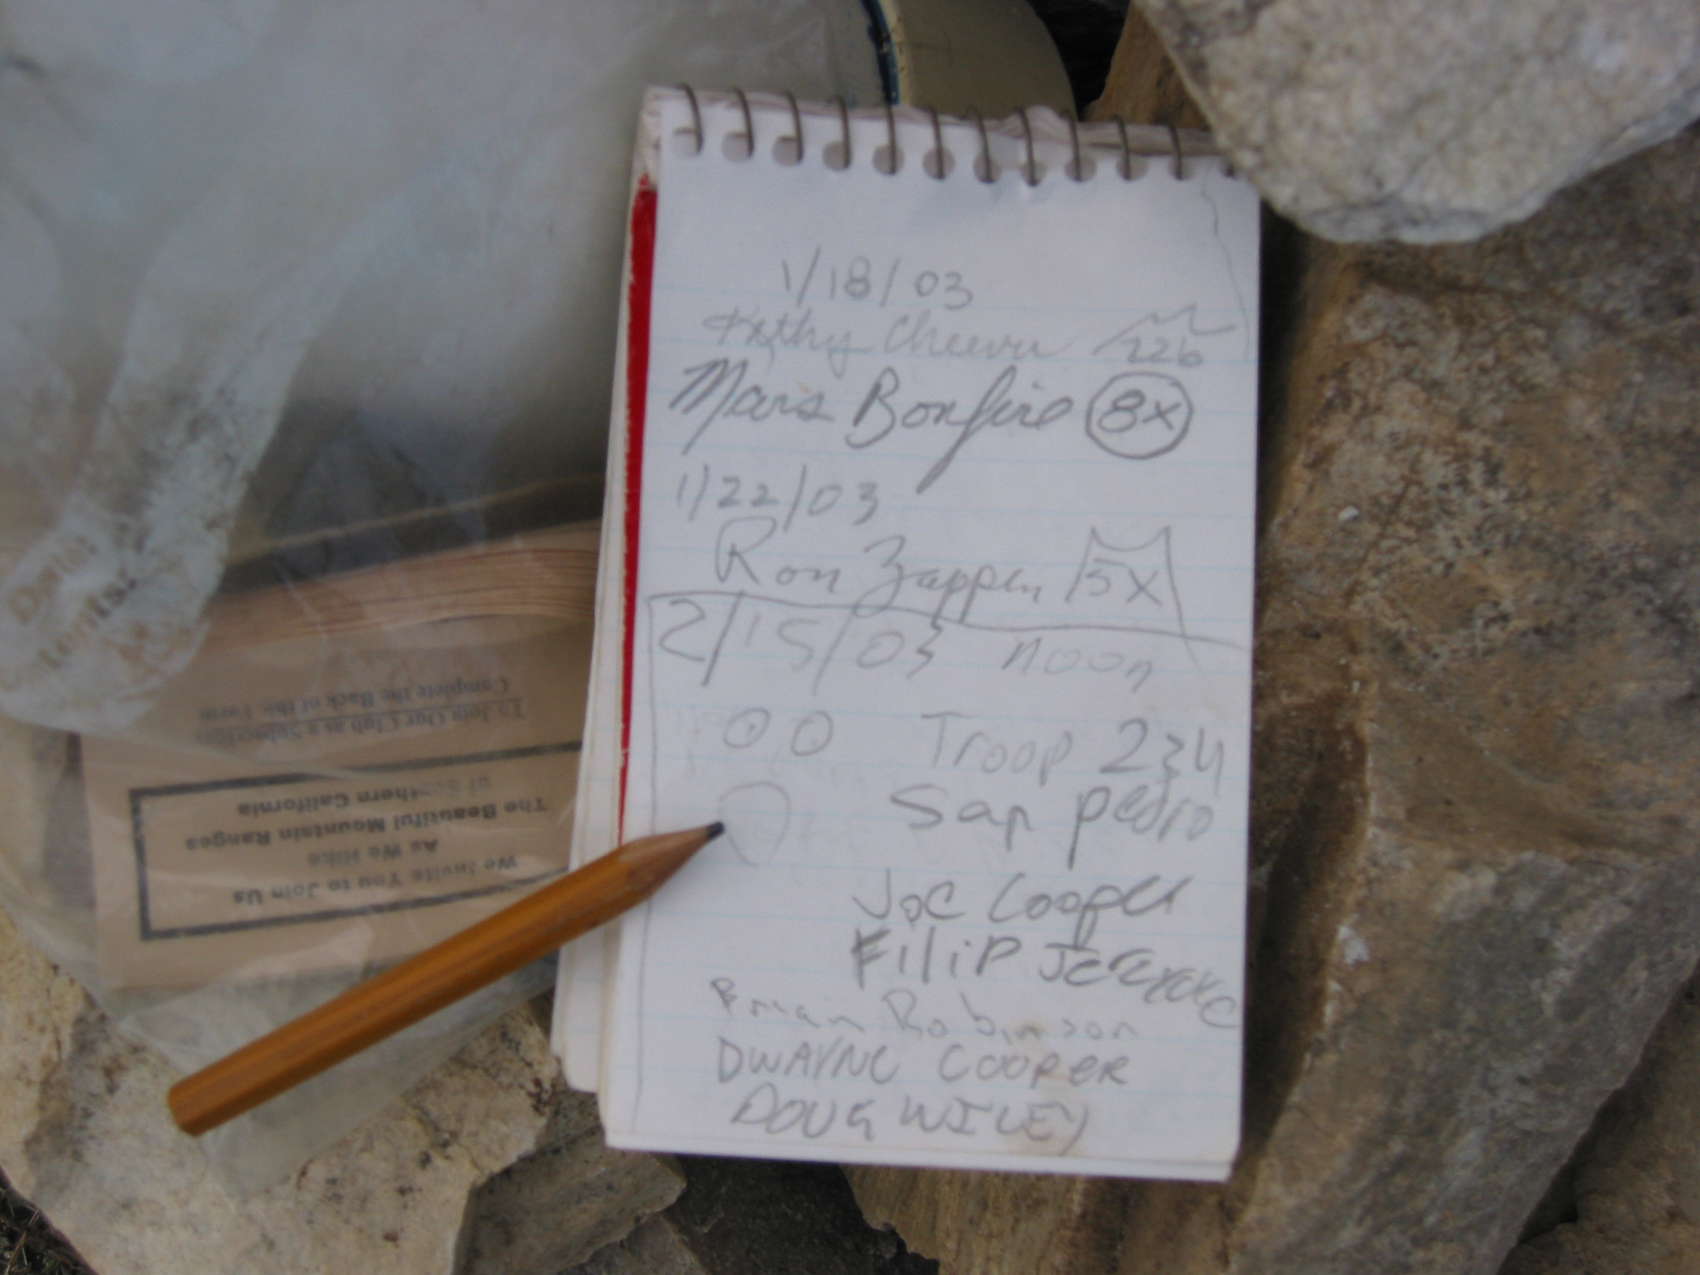 1/18/03
Kathy Cheever 226
Mars Bonfire 8x
1/22/03
Ron Zappen 5X
2/15/03 noon
Troop 234
San pedro
Joe Cooper
Filip
Robinson
DWAYNE COOPER
DOUG WILEY
We Invite You to Join Us
As We Hike
The Beautiful Mountain Ranges
of Southern California
To Join Our Club as a Subscriber
Complete the Back of this Form